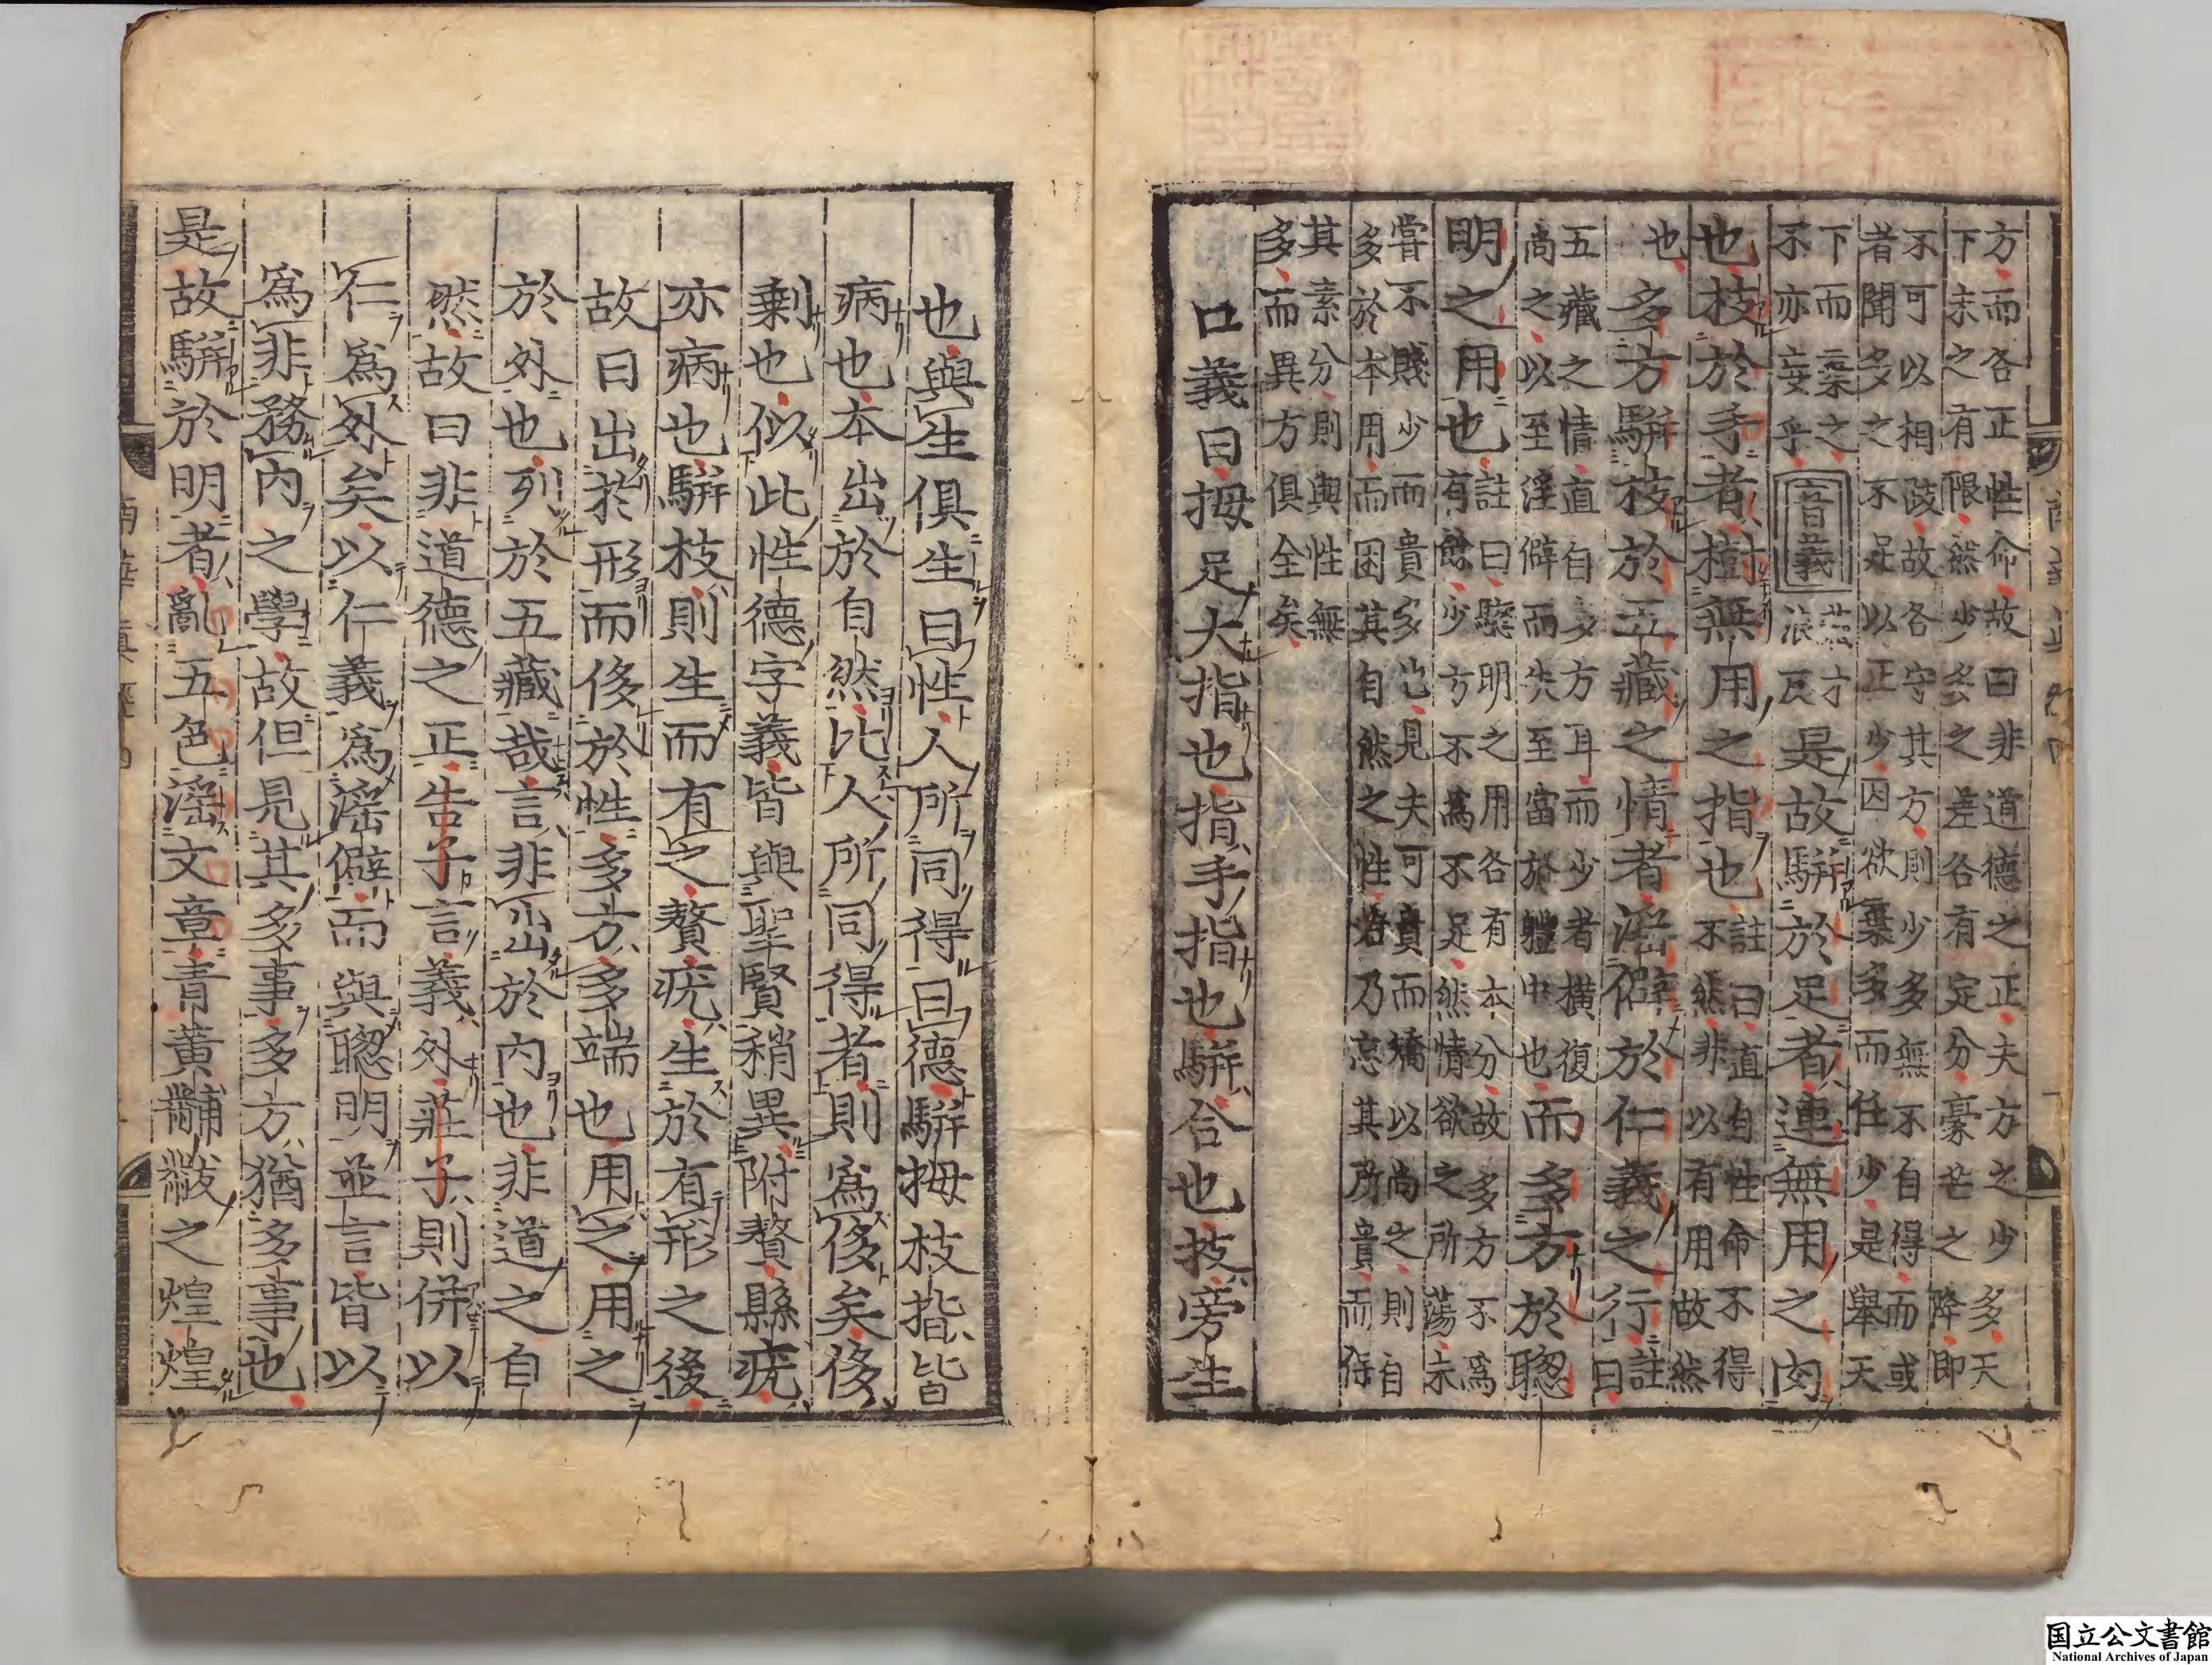 方而各正性命故曰非道德之正夫方之少多天
下未之有限然少多之差各有定分豪芒之降即
不可以相跂故各守其方則少多無不自得而或
者聞多之不足以正少因欲棄多而任少是舉天
下而棄之
不亦妄乎
音義
藏才
浪反
是故駢於足者連無用之肉
也枝於手者樹無用之指也
註曰直自性命不得
不然非以有用故然
也
多方駢枝於五藏之情者淫僻於仁義之行
註
曰
五藏之情直自多方耳而少者橫復
高之以至淫僻而失至當於軆中也
而多方於聦
明之用也
註曰聦明之用各有本分故多方不爲
有餘少方不爲不足然情欲之所蕩未
嘗不賤少而貴多也見夫可貴而矯以尚之則自
多於本用而困其自然之性若乃忘其所貴而保
其素分則與性無
多而異方俱全矣
口義曰拇足大指也指手指也駢合也枝旁生
也與生俱生曰性人所同得曰德駢拇枝指皆
病也本出於自然比人所同得者則爲侈矣侈
剩也似此性德字義皆與聖賢稍異附贅縣疣
亦病也駢枝則生而有之贅疣生於有形之後
故曰出於形而侈於性多方多端也用之用之
於外也列於五藏哉言非出於內也非道之自
然故曰非道德之正告子言義外莊子則併以
仁爲外矣以仁義爲淫僻而與聦明並言皆以
爲非務內之學故但見其多事多方猶多事也
是故駢於明者亂五色淫文章青黃黼黻之煌煌
南華真經四
国立公文書館
National Archives of Japan